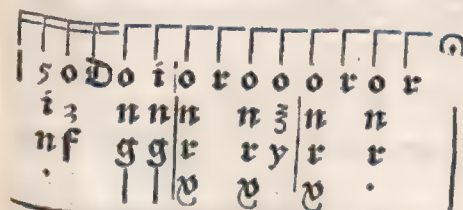 5 o D o i o r o o o r o r
i 3 n n n n ʒ n n
n f g g r r y r r
v v v